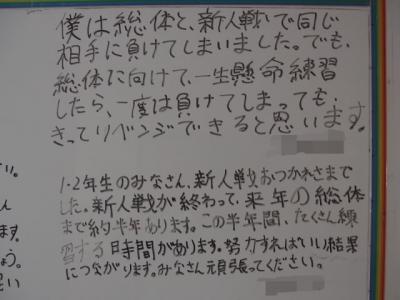 僕は総体と、新人戦で同じ
相手に負けてしまいました。でも、
総体に向けて、一生懸命練習
したら、一度は負けてしまっても、
きってリベンジできると思います。
1・2年生のみなさん、新人戦おつかれさまで
した。新人戦が終わって、来年の総体
まで約半年あります。この半年間、たくさん練
習する時間があります。努力すればいい結果
につながります。みなさん頑張ってください。